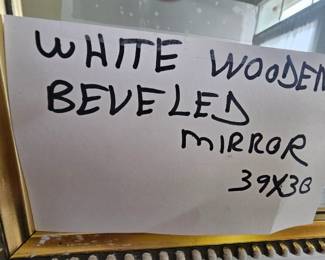 WHITE WOODEN
BEVELED
MIRROR
39X30